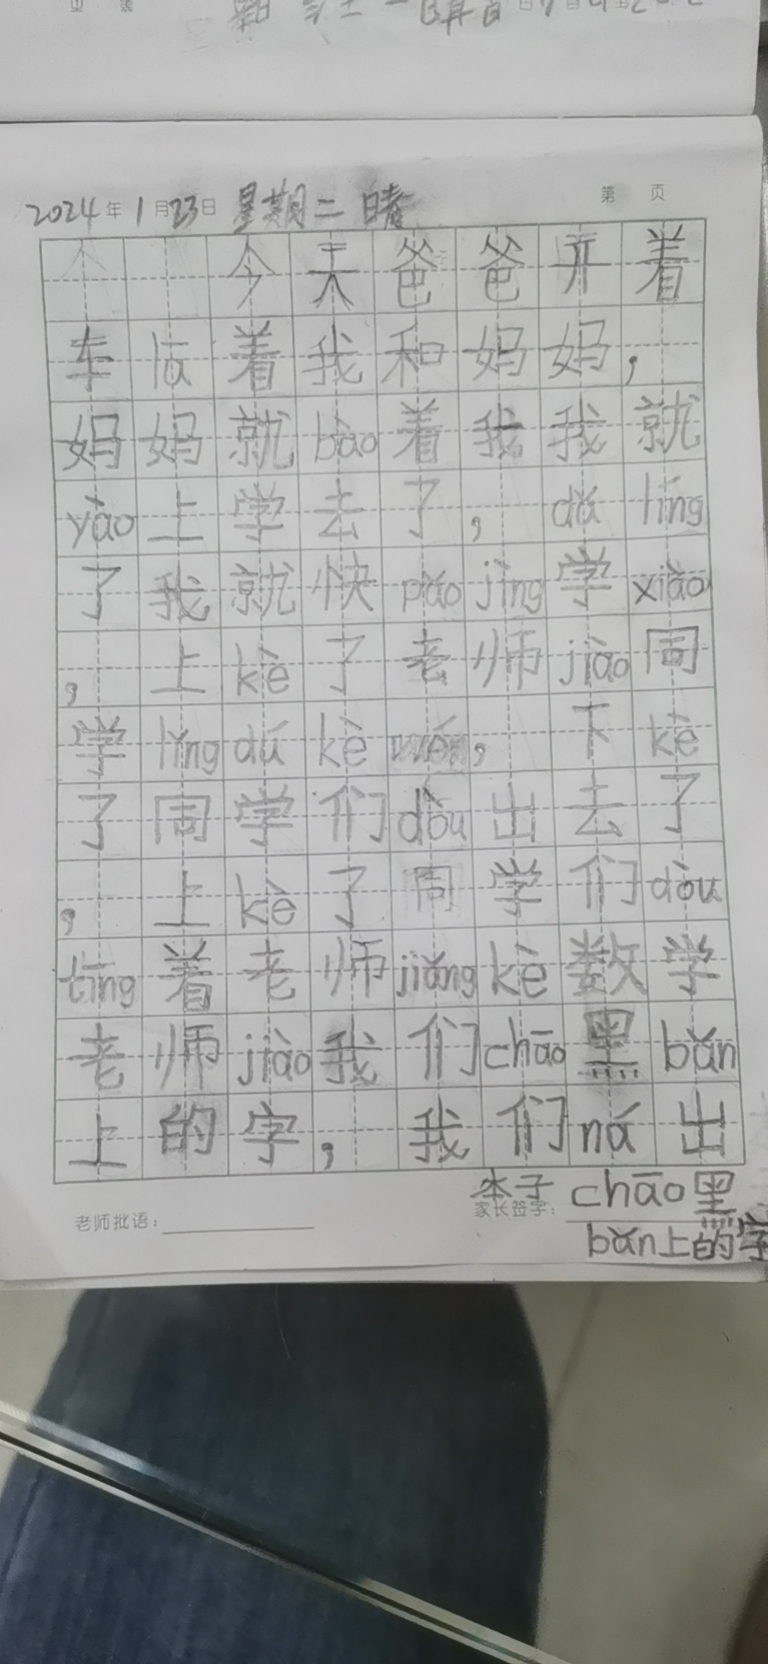 2024年1月23日 星期二 晴 第 页
今天爸爸开着
车lɑ着我和妈妈，
妈妈就bào着我我就
yào上学去了，dǎ líng
了我就快pǎo jìng学xiào
，上kè了老师jiào同
学lǐng dú kè wén，下kè
了同学们dōu出去了
，上kè了同学们dōu
tīng着老师jiǎng kè数学
老师jiào我们chāo黑bǎn
上的字，我们ná出
本子chāo黑
bǎn上的字
老师批语：
家长签字：